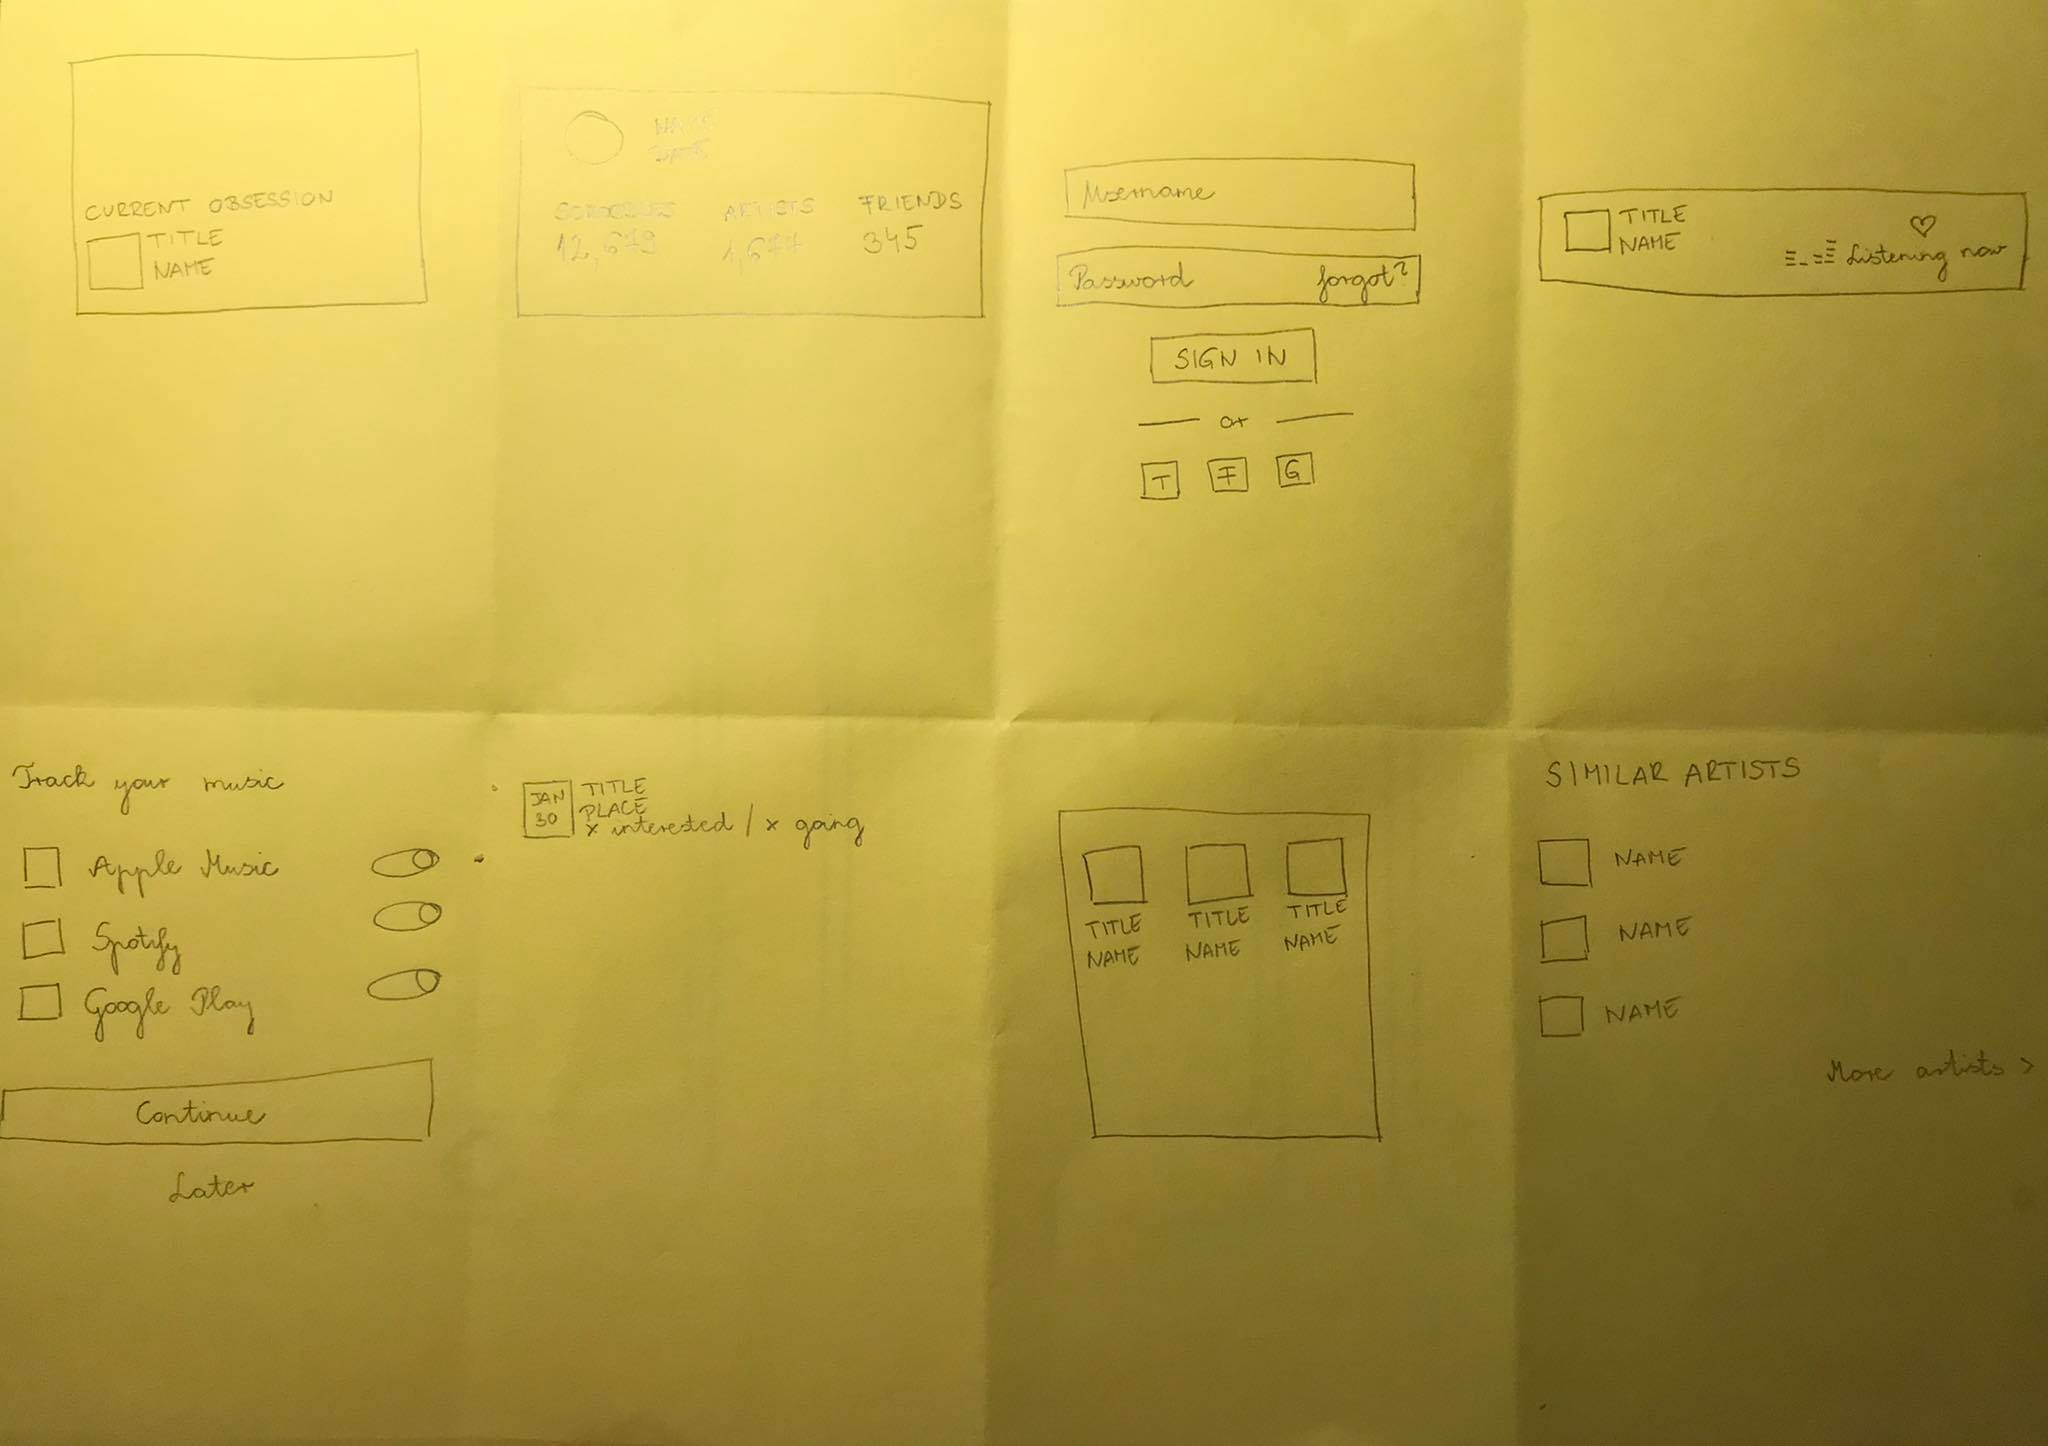 CURRENT OBSESSION
TITLE
NAME
NAME
DATE
SCROBBLES ARTISTS FRIENDS
12,679 1,677 345
Username
Password forgot?
SIGN IN
or
T F G
TITLE
NAME
Listening now
Track your music
Apple Music
Spotify
Google Play
Continue
Later
JAN
30
TITLE
PLACE
x interested / x going
TITLE TITLE TITLE
NAME NAME NAME
SIMILAR ARTISTS
NAME
NAME
NAME
More artists >